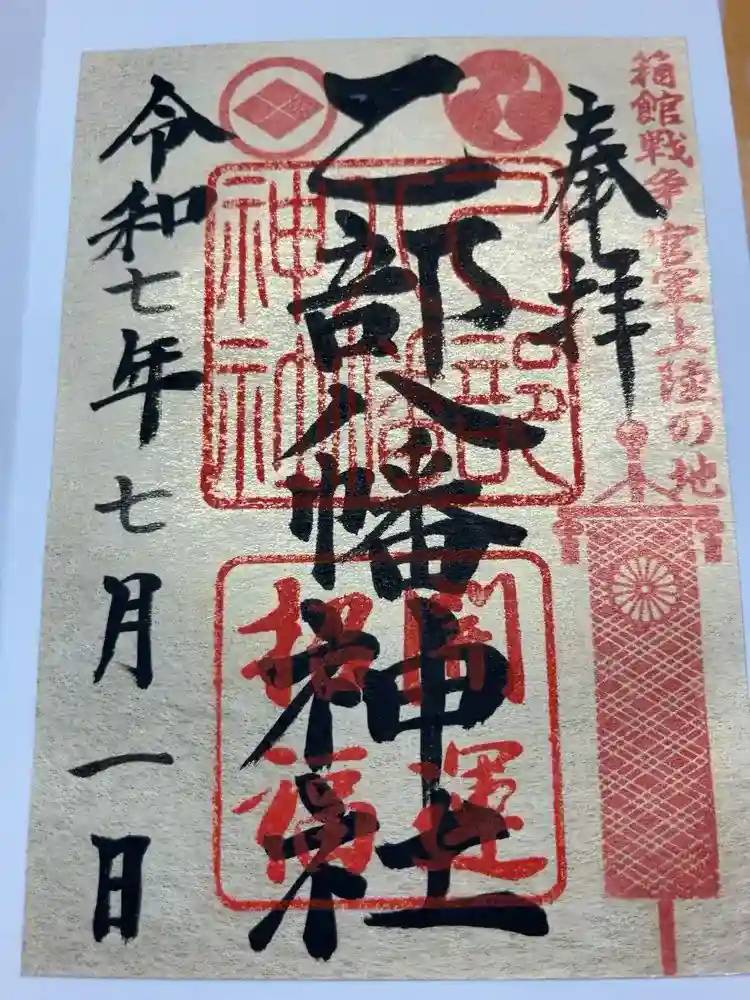 箱館戦争 官軍上陸の地
奉拝
乙部八幡神社
乙部
八幡
神社
開運
招福
令和七年七月一日